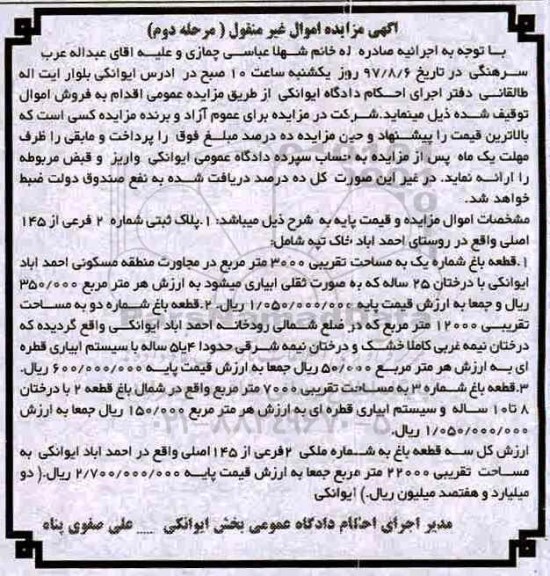 آگهی مزایده اموال غیر منقول ( مرحله دوم)
با توجه به اجرائیه صادره له خانم شهلا عباسی چمازی و علیه اقای عبداله عرب
سرهنگی در تاریخ ۹۷/۸/۶ روز یکشنبه ساعت ۱۰ صبح در ادرس ایوانکی بلوار ایت اله
طالقانی دفتر اجرای احکام دادگاه ایوانکی از طریق مزایده عمومی اقدام به فروش اموال
توقیف شده ذیل مینماید.شرکت در مزایده برای عموم آزاد و برنده مزایده کسی است که
بالاترین قیمت را پیشنهاد و حین مزایده ده درصد مبلغ فوق را پرداخت و مابقی را ظرف
مهلت یک ماه پس از مزایده به حساب سپرده دادگاه عمومی ایوانکی واریز و قبض مربوطه
را ارائه نماید. در غیر این صورت کل ده درصد دریافت شده به نفع صندوق دولت ضبط
خواهد شد.
مشخصات اموال مزایده و قیمت پایه به شرح ذیل میباشد: ۱.پلاک ثبتی شماره ۲ فرعی از ۱۴۵
اصلی واقع در روستای احمد اباد خاک تپه شامل:
۱.قطعه باغ شماره یک به مساحت تقریبی ۳۰۰۰ متر مربع در مجاورت منطقه مسکونی احمد اباد
ایوانکی با درختان ۲۵ ساله که به صورت ثقلی ابیاری میشود به ارزش هر متر مربع ۳۵۰/۰۰۰
ریال و جمعا به ارزش قیمت پایه ۱/۰۵۰/۰۰۰/۰۰۰ ریال. ۲.قطعه باغ شماره دو به مساحت
تقریبی ۱۲۰۰۰ متر مربع که در ضلع شمالی رودخانه احمد اباد ایوانکی واقع گردیده که
درختان نیمه غربی کاملا خشک و درختان نیمه شرقی حدودا ۴یا۵ ساله با سیستم ابیاری قطره
ای به ارزش هر متر مربع ۵۰/۰۰۰ ریال جمعا به ارزش قیمت پایه ۶۰۰/۰۰۰/۰۰۰ ریال.
۳.قطعه باغ شماره ۳ به مساحت تقریبی ۷۰۰۰ متر مربع واقع در شمال باغ قطعه ۲ با درختان
۸ تا۱۰ ساله و سیستم ابیاری قطره ای به ارزش هر متر مربع ۱۵۰/۰۰۰ ریال جمعا به ارزش
۱/۰۵۰/۰۰۰/۰۰۰ ریال.
ارزش کل سه قطعه باغ به شماره ملکی ۲فرعی از ۱۴۵اصلی واقع در احمد اباد ایوانکی به
مساحت تقریبی ۲۲۰۰۰ متر مربع جمعا به ارزش قیمت پایه ۲/۷۰۰/۰۰۰/۰۰۰ ریال.( دو
میلیارد و هفتصد میلیون ریال.) ایوانکی
مدیر اجرای احکام دادگاه عمومی بخش ایوانکی ــــ علی صفوی پناه